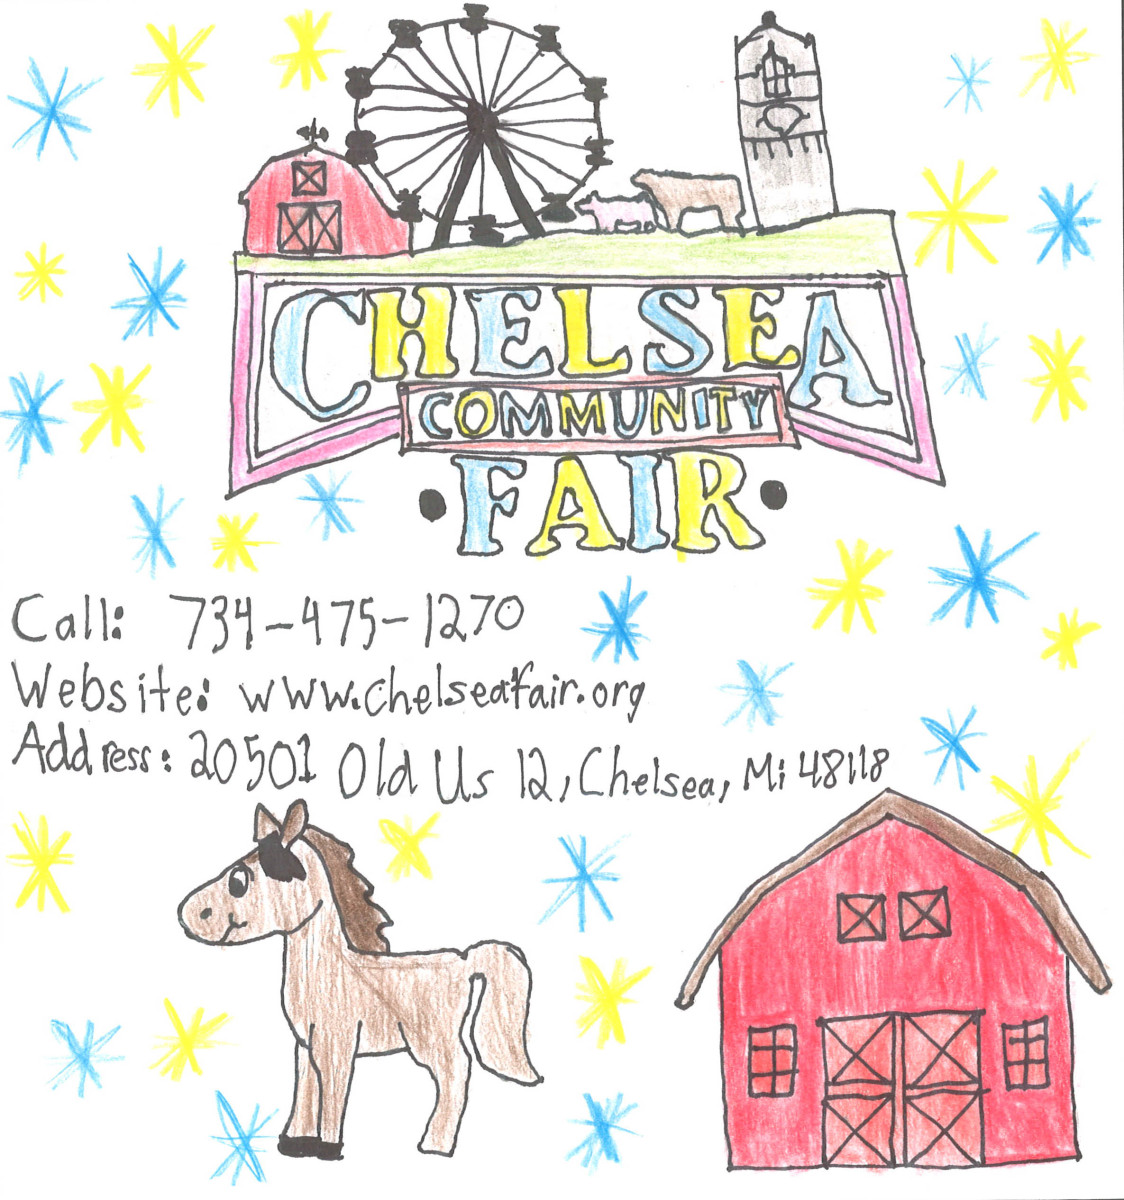 CHELSEA
COMMUNITY
• FAIR •
Call: 734-475-1270
Website: www.chelseafair.org
Address: 20501 Old Us 12, Chelsea, Mi 48118